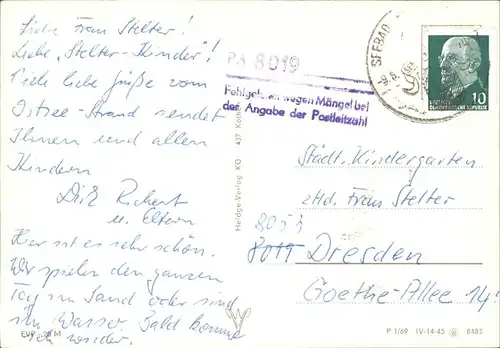 Liebe Frau Stelter!
Liebe "Stelter-Kinder"!
Viele liebe Grüße vom
Ostsee-Strand sendet
Ihnen und allen
Kindern
Dirk Richert
u. Eltern
Hier ist es sehr schön.
Wir spielen den ganzen
Tag im Sand oder sind
im Wasser. Bald komme
ich wieder.
EVP 20 M
Heldge-Verlag KG 437 Köthen
PA 8019
wegen Mängel bei
der Angabe der Postleitzahl
SEEBAD
10
DEUTSCHE DEMOKRATISCHE REPUBLIK
Städt. Kindergarten
z.Hd. Frau Stelter
8053
8019 Dresden
Goethe-Allee 14!
P 1/69 IV-14-45 8483